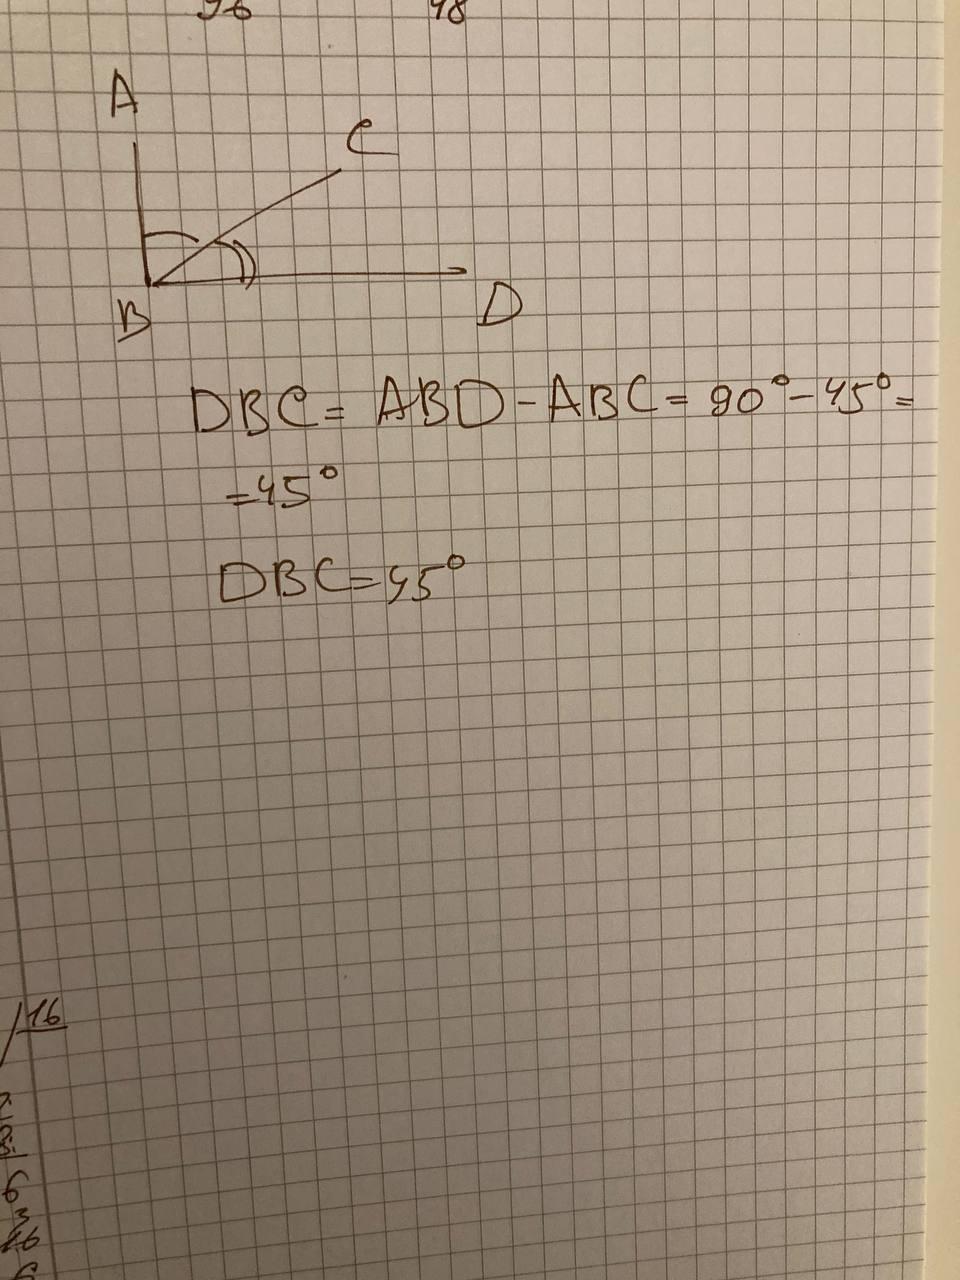 96 48
A
C
B
D
DBC = ABD - ABC = 90° - 45° =
= 45°
DBC = 45°
16
6
16